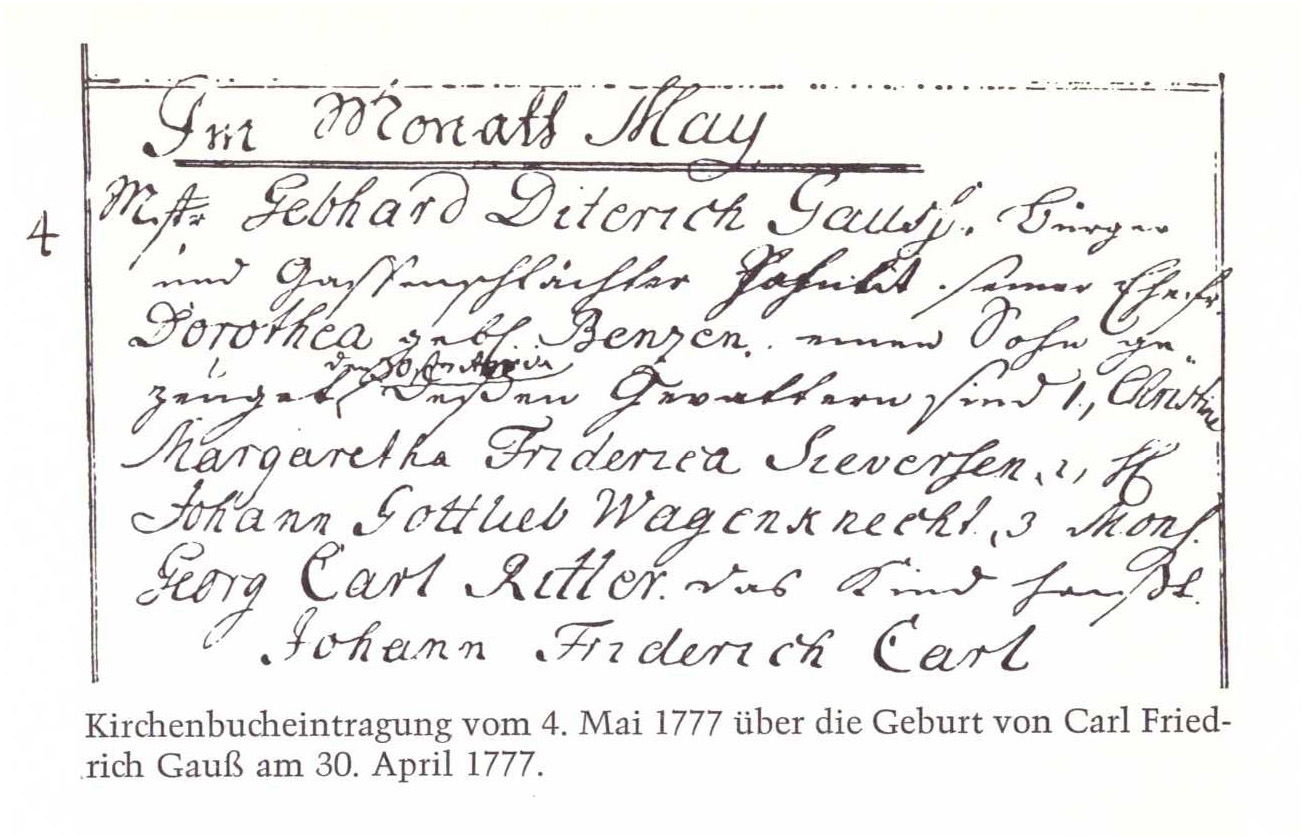 Im Monath May
4
Mstr Gebhard Diterich Gauss. Bürger
und Gassenschlächter seiner Ehefr.
Dorothea gebh. Benzen. einen Sohn ge-
den 30sten April
zeuget, Deßen Gevattern sind 1, Christine
Margaretha Friderica Sieversen, 2, H
Johann Gottlieb Wagenknecht, 3 Mons.
Georg Carl Ritter. das Kind heißt.
Johann Friderich Carl
Kirchenbucheintragung vom 4. Mai 1777 über die Geburt von Carl Fried-
rich Gauß am 30. April 1777.